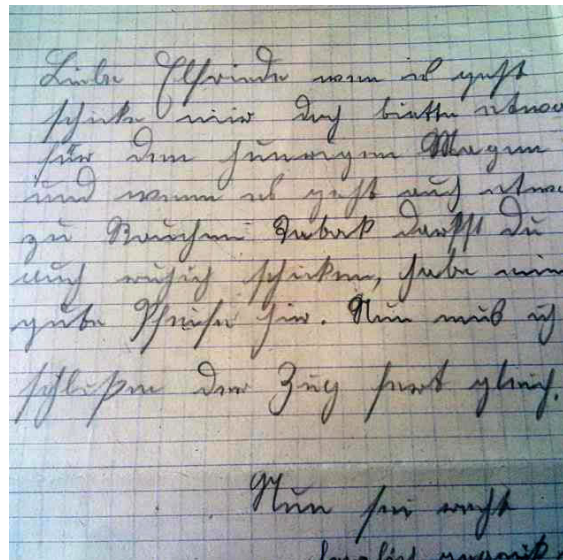 Liebe Elfriede wenn es geht
schicke mir doch biette etwas
für den hunrigen Magen
und wenn es geht auch etwas
zu Rauchen Tabak darfst du
auch ruhich schicken, habe eine
gute Pfeife hir. Nun muß ich
schlißen der Zug fart gleich.
Nun sei recht
herzlich